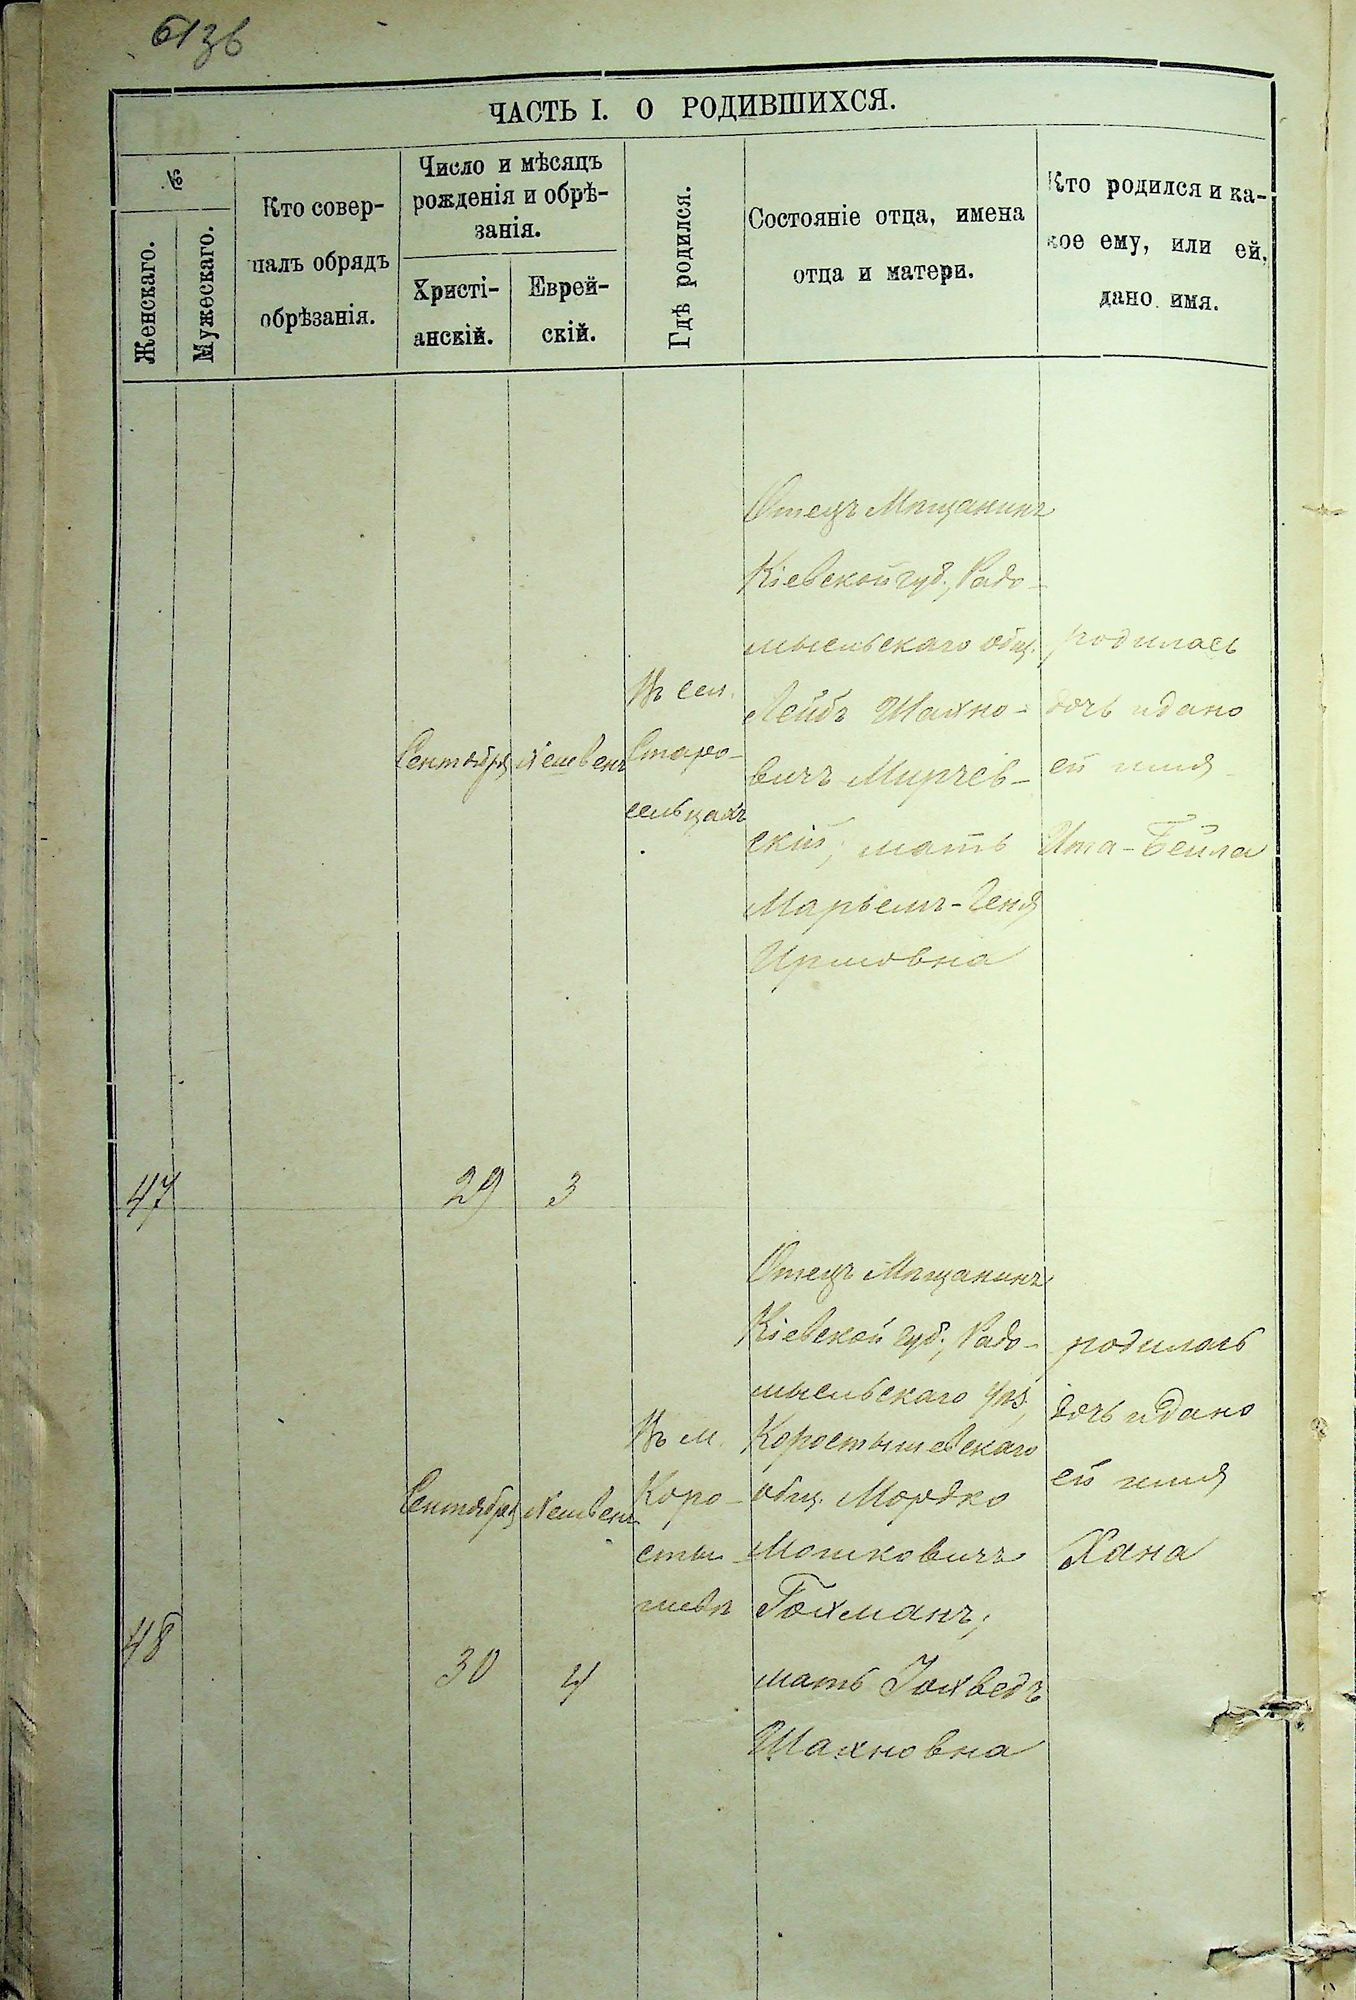 613б
ЧАСТЬ I. О РОДИВШИХСЯ.
№
Женскаго.
Мужескаго.
Кто совер-
палъ обрядъ
обрѣзанія.
Число и мѣсяцъ
рожденія и обрѣ-
занія.
Христі-
анскій.
Еврей-
скій.
Гдѣ родился.
Состояніе отца, имена
отца и матери.
Кто родился и ка-
кое ему, или ей,
дано имя.
47
Сентября
29
Хешвенъ
3
Въ сел.
Старо-
сельцахъ
Отецъ Мѣщанинъ
Кіевской губ., Радо-
мысльскаго общ.
Лейбъ Шахно-
вичъ
скій; мать
Марьемъ-Геня
родилась
дочь и дано
ей имя
Ита-Бейла
48
Сентября
30
Хешвенъ
4
Въ м.
Коро-
сты-
шевѣ
Отецъ Мѣщанинъ
Кіевской губ., Радо-
мысльскаго уѣз,
Коростышевскаго
общ. Мордко
Мошковичъ
Гохманъ;
мать Іохведъ
Шахновна
родилась
дочь и дано
ей имя
Хана